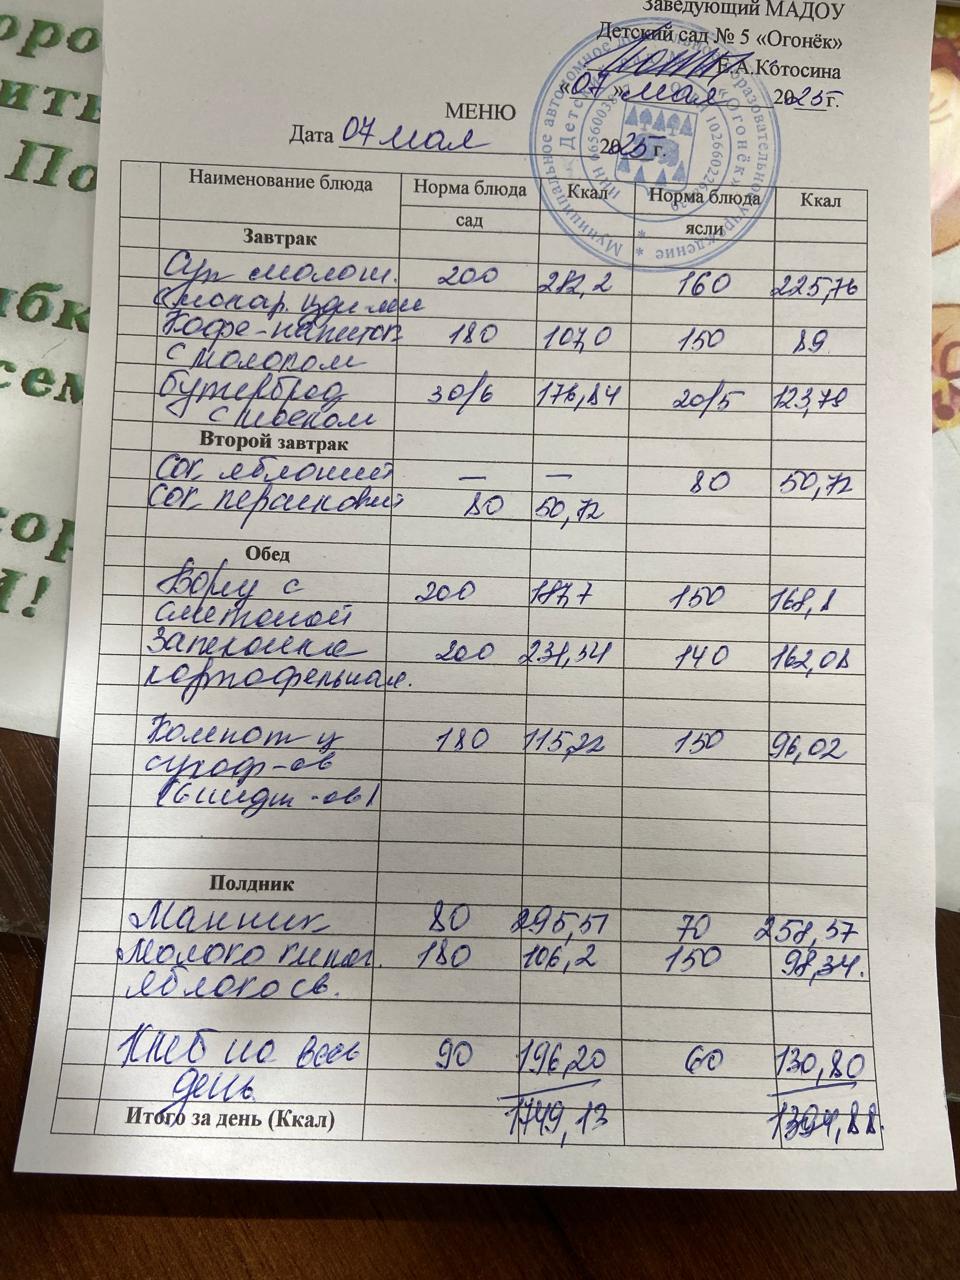 Заведующий МАДОУ
Детский сад № 5 «Огонёк»
Е.А.Котосина
«07» мая 2025г.
МЕНЮ
Дата 07 мая 2025 г.
Наименование блюда Норма блюда Ккал Норма блюда Ккал
сад ясли
Завтрак
Суп молоч. 200 282,2 160 225,76
с макар. изделиями
Кофе-напиток 180 107,0 150 89
с молоком
бутерброд 30/6 176,84 20/5 123,79
с маслом
Второй завтрак
Сок яблочный — — 80 50,72
Сок персиковый 80 50,72
Обед
Борщ с 200 187,7 150 168,8
сметаной
Запеканка 200 231,54 140 162,08
картофельная.
Компот из 180 115,22 150 96,02
сухоф-ов
Полдник
Манник 80 295,51 70 258,57
Молоко кипяч. 180 106,2 150 98,34.
Яблоко св.
Хлеб на весь 90 196,20 60 130,80
день
Итого за день (Ккал) 1749,13 1394,88.